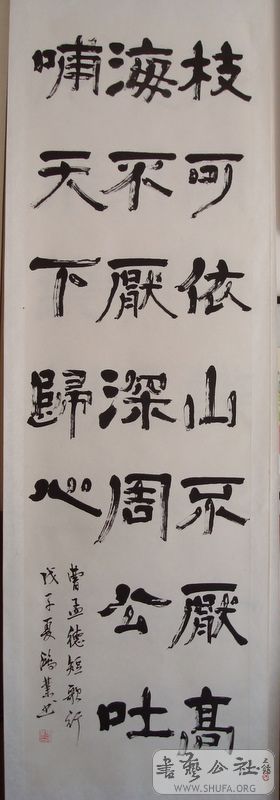 枝可依山不厭高
海不厭深周公吐
哺天下歸心
曹孟德短歌行
戊子夏鴻業书
書藝公社
WWW.SHUFA.ORG